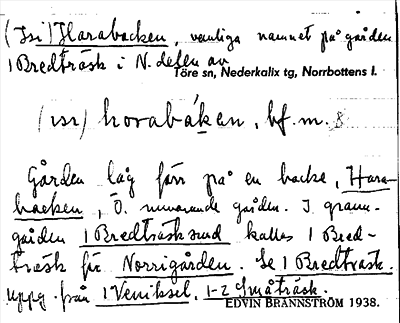 (Isi) Harabacken, vanliga namnet på gården
1 Bredträsk i N. delen av
Töre sn, Nederkalix tg, Norrbottens l.
(ɪsɪ) horabáken, bf. m.
Gården låg förr på en backe, Hara-
backen, Ö. nuvarande gården. I grann-
gården 1 Bredträsksund kallas 1 Bred-
träsk för Norrigården. Se 1 Bredträsk.
uppg. från 1 Veniksel, 1-2 Småträsk.
EDVIN BRÄNNSTRÖM 1938.